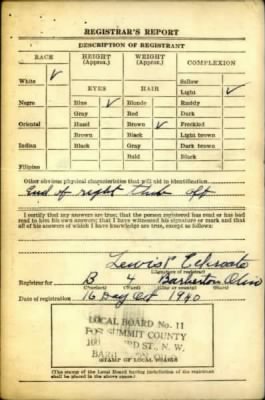 REGISTRAR'S REPORT
DESCRIPTION OF REGISTRANT
RACE HEIGHT (Approx.) WEIGHT (Approx.) COMPLEXION
White ✓ Sallow
EYES HAIR Light ✓
Negro Blue ✓ Blonde Ruddy
Gray Red Dark
Oriental Hazel Brown ✓ Freckled
Brown Black Light brown
Indian Black Gray Dark brown
Bald Black
Filipino
Other obvious physical characteristics that will aid in identification
End of right thum off
I certify that my answers are true; that the person registered has read or has had
read to him his own answers; that I have witnessed his signature or mark and that
all of his answers of which I have knowledge are true, except as follows:
Lewis
(Signature of registrar)
Registrar for B 4 Barberton Ohio
(Precinct) (Ward) (City or county) (State)
Date of registration 16 Day Oct 1940
LOCAL BOARD No. 11
FOR SUMMIT COUNTY
ST., N. W.
OHIO
(STAMP OF LOCAL BOARD)
(The stamp of the Local Board having jurisdiction of the registrant
shall be placed in the above space.)